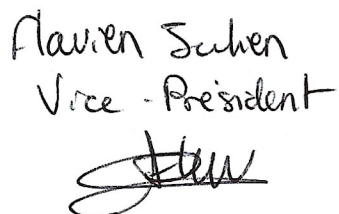 Flavien Julien
Vice-Président